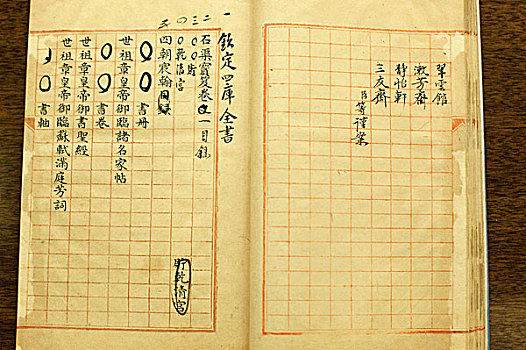 翠雲館
漱芳齋
靜怡軒
三友齋
臣等謹案
一 欽定四庫全書
二 石渠寶笈卷一目錄
三〇〇貯
四〇乾清宮
五 四朝宸翰目錄
〇〇書冊
世祖章皇帝御臨諸名家帖
〇〇書卷
世祖章皇帝御書聖經
〇〇書軸
世祖章皇帝御臨蘇軾滿庭芳詞
貯乾清宮